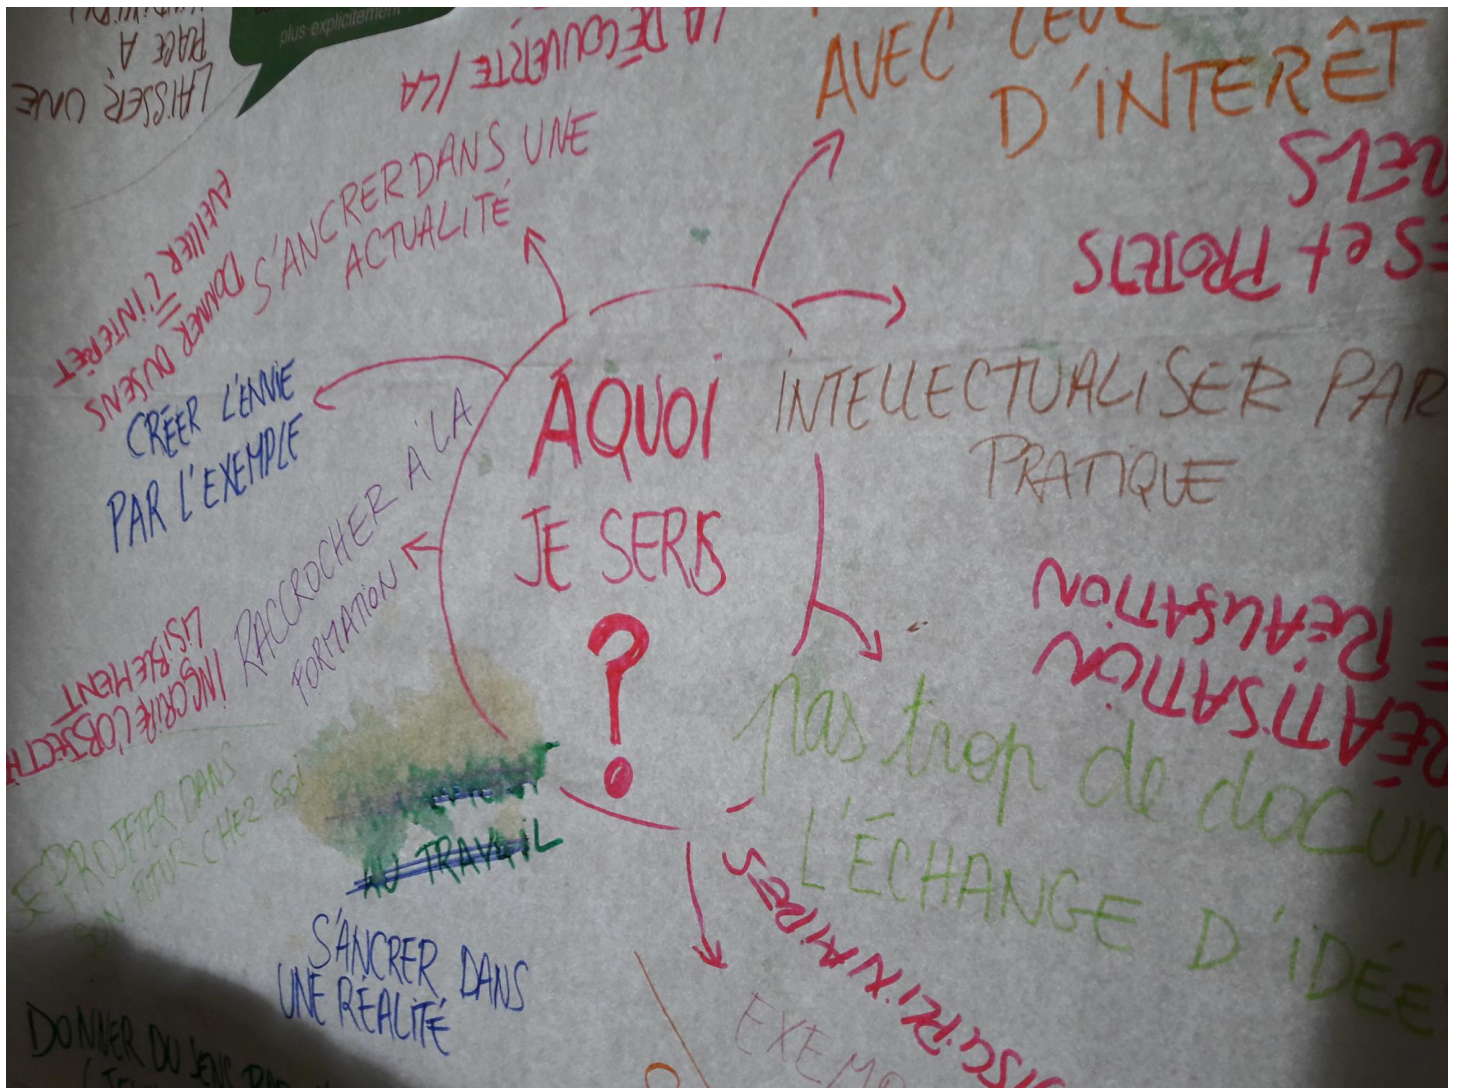 plus explicitement
LAISSER UNE
PLACE À
LA DÉCOUVERTE / LA
AVEC LEUR
D'INTERÊT
S'ANCRER DANS UNE
ACTUALITÉ
EVEILLER L'INTERÊT
=
DONNER DU SENS
ES et PROJETS
NELS
CRÉER L'ENVIE
PAR L'EXEMPLE
À QUOI
JE SERS
?
INTELLECTUALISER PAR
PRATIQUE
RACCROCHER À LA
FORMATION
INSCRIRE L'OBJECTIF
LISIBLEMENT
RÉATISATION
E RÉALISATION
pas trop de docum
L'ÉCHANGE D'IDÉE
SE PROJETER DANS
SON FUTUR CHEZ SOI
AU TRAVAIL
S'ANCRER DANS
UNE RÉALITÉ
DISCIPLINAIRES
EXEMP
DONNER DU SENS